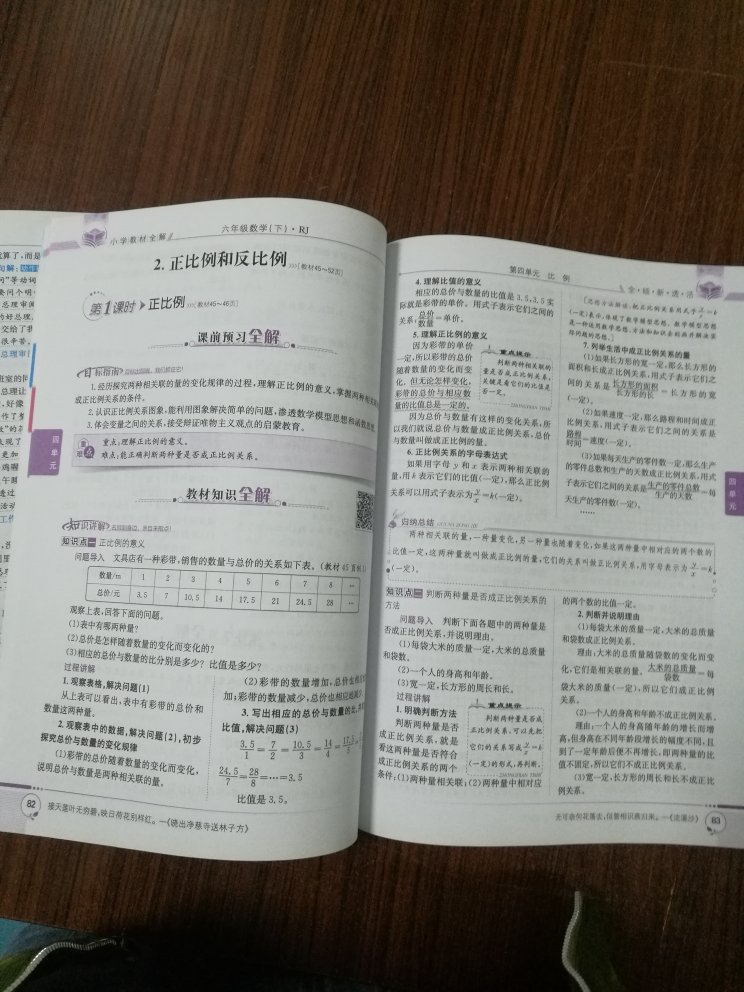 小学教材全解
六年级数学(下)·RJ
2. 正比例和反比例 >>>[教材45~52页]
第1课时 正比例 >>>[教材45~46页]
课前预习全解
目标指南
1.经历探究两种相关联的量的变化规律的过程,理解正比例的意义,掌握两种相关联的
成正比例关系的条件。
2.认识正比例关系图象,能利用图象解决简单的问题,渗透数学模型思想和函数思想
3.体会变量之间的关系,接受辩证唯物主义观点的启蒙教育。
重难点
重点:理解正比例的意义。
难点:能正确判断两种量是否成正比例关系。
教材知识全解
知识讲解
知识点一 正比例的意义
问题导入 文具店有一种彩带,销售的数量与总价的关系如下表。(教材45页例1)
数量/m 1 2 3 4 5 6 7 8 …
总价/元 3.5 7 10.5 14 17.5 21 24.5 28 …
观察上表,回答下面的问题。
(1)表中有哪两种量?
(2)总价是怎样随着数量的变化而变化的?
(3)相应的总价与数量的比分别是多少?比值是多少?
过程讲解
1. 观察表格,解决问题(1)
从上表可以看出,表中有彩带的总价和
数量这两种量。
2. 观察表中的数据,解决问题(2),初步
探究总价与数量的变化规律
(1)彩带的总价随着数量的变化而变化,
说明总价与数量是两种相关联的量。
(2)彩带的数量增加,总价也
加;彩带的数量减少,总价也相应
3. 写出相应的总价与数量的比,
比值,解决问题(3)
3.5/1=7/2=10.5/3=14/4=17.5/
24.5/7=28/8=…=3.5
比值是3.5。
82
接天莲叶无穷碧,映日荷花别样红。—《晓出净慈寺送林子方》
四单元
第四单元 比 例
全·细·新·透·活
4. 理解比值的意义
相应的总价与数量的比值是3.5,3.5实
际就是彩带的单价。用式子表示它们之间的
关系:总价/数量=单价。
5. 理解正比例的意义
因为彩带的单价
一定,所以彩带的总价
随着数量的变化而变
化,但无论怎样变化,
彩带的总价与相应数
量的比值总是一定的。
重点提示
判断两种相关联的
量是否成正比例关系,
关键是看它们的比值是
否一定。
ZHONGDIAN TISHI
因为总价与数量有这样的变化关系,所
以我们就说总价与数量成正比例关系,总价
与数量叫做成正比例的量。
6. 正比例关系的字母表达式
如果用字母 y 和 x 表示两种相关联的
量,用 k 表示它们的比值(一定),那么正比例
关系可以用式子表示为y/x=k(一定)。
7. 列举生活中成正比例关系的量
(1)如果长方形的宽一定,那么长方形的
面积和长成正比例关系,用式子表示它们之
间的关系是长方形的面积/长方形的长=长方形的宽
(一定)。
(2)如果速度一定,那么路程和时间成正
比例关系,用式子表示它们之间的关系是
路程/时间=速度(一定)。
(3)如果每天生产的零件数一定,那么生产
的零件总数和生产的天数成正比例关系,用式
子表示它们之间的关系是生产的零件总数/生产的天数=每
天生产的零件数(一定)。
……
归纳总结
两种相关联的量,一种量变化,另一种量也随着变化,如果这两种量中相对应的两个数的
比值一定,这两种量就叫做成正比例的量,它们的关系叫做正比例关系,用字母表示为y/x=k
(一定)。
知识点二 判断两种量是否成正比例关系的
方法
问题导入 判断下面各题中的两种量是
否成正比例关系,并说明理由。
(1)每袋大米的质量一定,大米的总质量
和袋数。
(2)一个人的身高和年龄。
(3)宽一定,长方形的周长和长。
过程讲解
1. 明确判断方法
判断两种量是否
成正比例关系,就是
看这两种量是否符合
成正比例关系的两个
条件:(1)两种量相关联;(2)两种量中相对应
重点提示
判断两种量是否成
正比例关系,可以先把
它们的关系写成y/x=k
(一定)的形式,再判断。
ZHONGDIAN TISHI
的两个数的比值一定。
2. 判断并说明理由
(1)每袋大米的质量一定,大米的总质量
和袋数成正比例关系。
理由:大米的总质量随袋数的变化而变
化,它们是相关联的量。大米的总质量/袋数=每
袋大米的质量(一定),所以它们成正比例
关系。
(2)一个人的身高和年龄不成正比例关系。
理由:一个人的身高随年龄的增长而增
高,但身高在不同年龄段增长的幅度不同,且
到了一定年龄后便不再增长,即两种量的比
值不固定,所以它们不成正比例关系。
(3)宽一定,长方形的周长和长不成正比
例关系。
无可奈何花落去,似曾相识燕归来。—《浣溪沙》
83
四单元